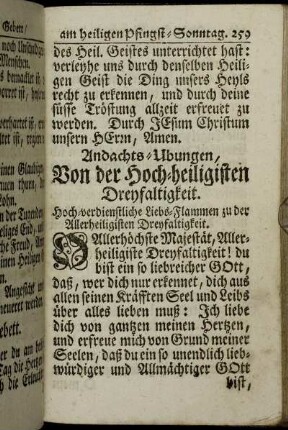 am heiligen Pfingst-Sonntag. 259
des Heil. Geistes unterrichtet hast:
verleyhe uns durch denselben Heili-
gen Geist die Ding unsers Heyls
recht zu erkennen, und durch deine
süsse Tröstung allzeit erfreuet zu
werden. Durch JEsum Christum
unsern HErrn, Amen.
Andachts-Ubungen,
Von der Hoch-heiligisten
Dreyfaltigkeit.
Hoch-verdienstliche Liebs-Flammen zu der
Allerheiligisten Dreyfaltigkeit.
O Allerhöchste Majestät, Aller-
heiligiste Dreyfaltigkeit! du
bist ein so liebreicher GOtt,
daß, wer dich nur erkennet, dich aus
allen seinen Kräfften Seel und Leibs
über alles lieben muß: Ich liebe
dich von gantzen meinen Hertzen,
und erfreue mich von Grund meiner
Seelen, daß du ein so unendlich lieb-
würdiger und Allmächtiger GOtt
bist,